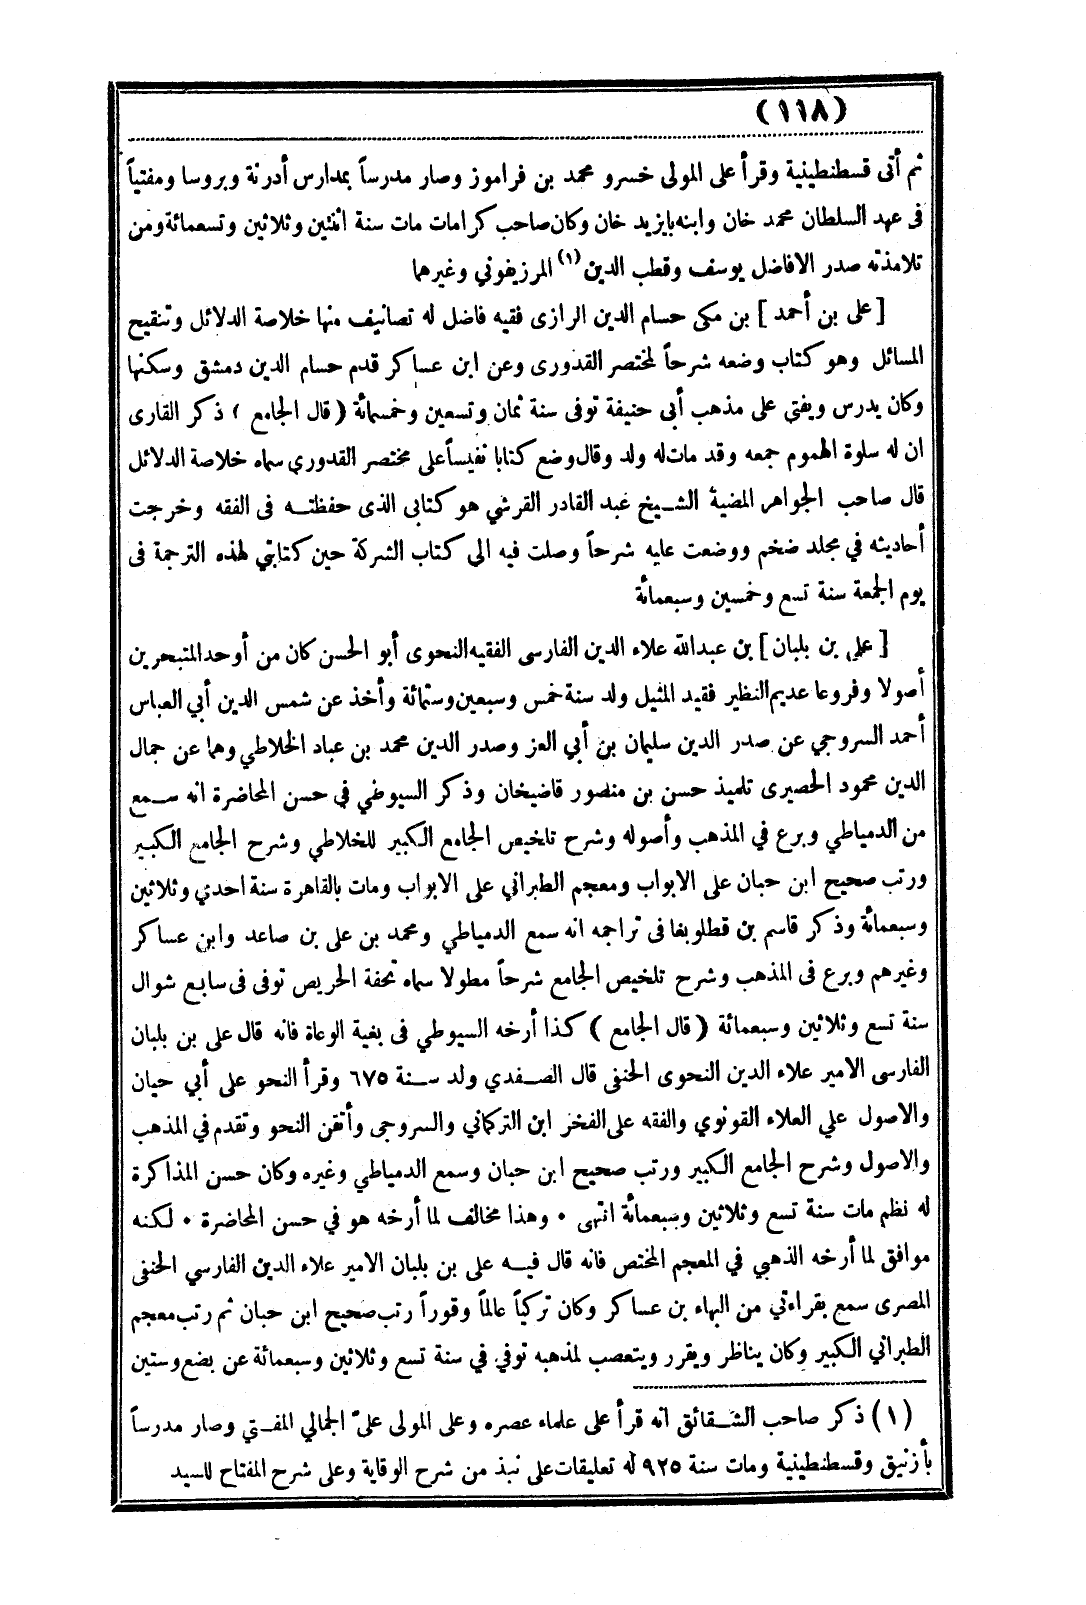 (١١٨)
ثم أتى قسطنطينية وقرأ على المولى خسرو محمد بن فراموز وصار مدرساً بمدارس أدرنة وبروسا ومفتياً
فى عهد السلطان محمد خان وابنه بايزيد خان وكان صاحب كرامات مات سنة اثنتين وثلاثين وتسعمائة ومن
تلامذته صدر الافاضل يوسف وقطب الدين (١) المرزيفوني وغيرهما
[على بن أحمد] بن مكى حسام الدين الرازى فقيه فاضل له تصانيف منها خلاصة الدلائل وتنقيح
المسائل وهو كتاب وضعه شرحاً لمختصر القدورى وعن ابن عساكر قدم حسام الدين دمشق وسكنها
وكان يدرس ويفتى على مذهب أبى حنيفة توفى سنة ثمان وتسعين وخمسمائة (قال الجامع) ذكر القارى
ان له سلوة الهموم جمعه وقد مات له ولد وقال وضع كتابا نفيساً على مختصر القدوري سماه خلاصة الدلائل
قال صاحب الجواهر المضية الشيخ عبد القادر القرشي هو كتابى الذى حفظته فى الفقه وخرجت
أحاديثه في مجلد ضخم ووضعت عليه شرحاً وصلت فيه الى كتاب الشركة حين كتابتي لهذه الترجمة فى
يوم الجمعة سنة تسع وخمسين وسبعمائة
[على بن بلبان] بن عبدالله علاء الدين الفارسى الفقيه النحوى أبو الحسن كان من أوحد المتبحرين
أصولا وفروعا عديم النظير فقيد المثيل ولد سنة خمس وسبعين وستمائة وأخذ عن شمس الدين أبي العباس
أحمد السروجي عن صدر الدين سليمان بن أبي العز وصدر الدين محمد بن عباد الخلاطي وهما عن جمال
الدين محمود الحصيرى تلميذ حسن بن منصور قاضيخان وذكر السيوطي في حسن المحاضرة انه سمع
من الدمياطي وبرع في المذهب وأصوله وشرح تلخيص الجامع الكبير للخلاطي وشرح الجامع الكبير
ورتب صحيح ابن حبان على الابواب ومعجم الطبراني على الابواب ومات بالقاهرة سنة احدي وثلاثين
وسبعمائة وذكر قاسم بن قطلوبغا فى تراجمه انه سمع الدمياطي ومحمد بن على بن صاعد وابن عساكر
وغيرهم وبرع فى المذهب وشرح تلخيص الجامع شرحاً مطولا سماه تحفة الحريص توفى فى سابع شوال
سنة تسع وثلاثين وسبعمائة (قال الجامع) كذا أرخه السيوطي فى بغية الوعاة فانه قال على بن بلبان
الفارسى الامير علاء الدين النحوى الحنفى قال الصفدي ولد سنة ٦٧٥ وقرأ النحو على أبي حيان
والاصول علي العلاء القونوي والفقه على الفخر ابن التركماني والسروجى وأتقن النحو وتقدم في المذهب
والاصول وشرح الجامع الكبير ورتب صحيح ابن حبان وسمع الدمياطي وغيره وكان حسن المذاكرة
له نظم مات سنة تسع وثلاثين وسبعمائة انتهى • وهذا مخالف لما أرخه هو في حسن المحاضرة • لكنه
موافق لما أرخه الذهبي في المعجم المختص فانه قال فيه على بن بلبان الامير علاء الدين الفارسي الحنفى
المصرى سمع بقراءتي من البهاء بن عساكر وكان تركياً عالماً وقوراً رتب صحيح ابن حبان ثم رتب معجم
الطبراني الكبير وكان يناظر ويقرر ويتعصب لمذهبه توفي في سنة تسع وثلاثين وسبعمائة عن بضع وستين
(١) ذكر صاحب الشقائق انه قرأ على علماء عصره وعلى المولى علىّ الجمالي المفتي وصار مدرساً
بأزنيق وقسطنطينية ومات سنة ٩٢٥ له تعليقات على نبذ من شرح الوقاية وعلى شرح المفتاح للسيد